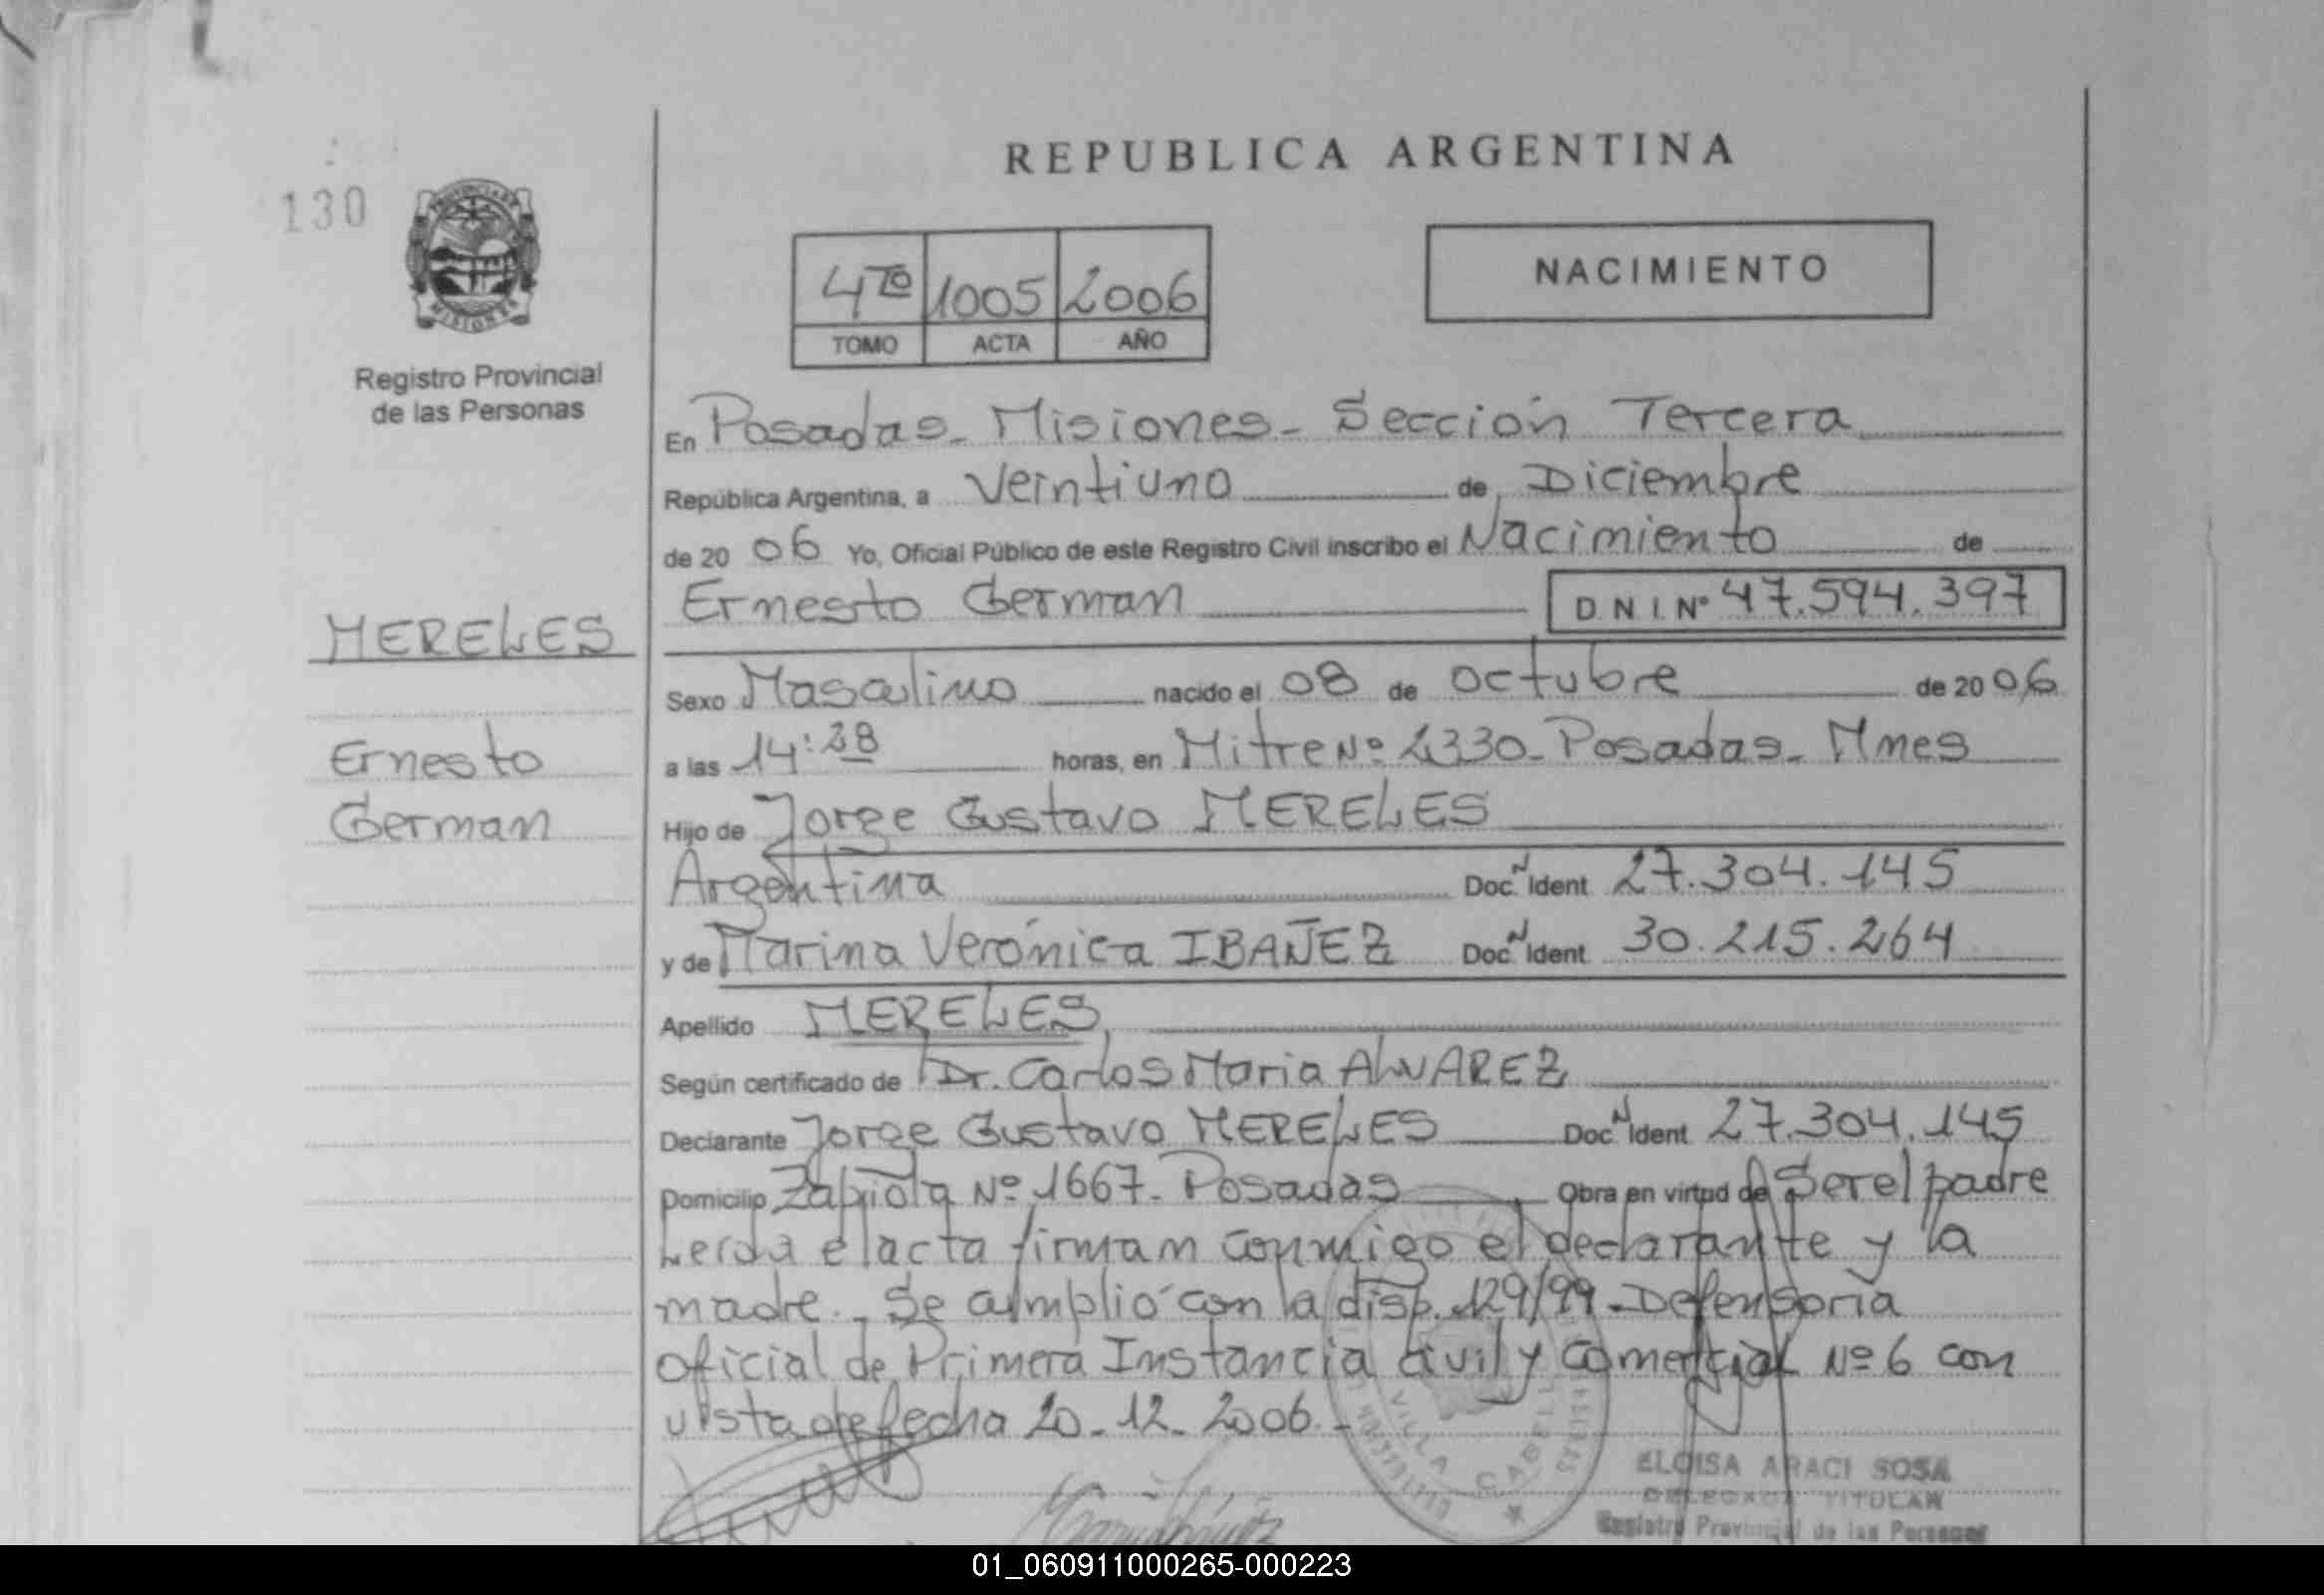 REPUBLICA ARGENTINA
130
4TO 1005 2006
TOMO ACTA AÑO
NACIMIENTO
Registro Provincial
de las Personas
En Posadas - Misiones - Sección Tercera
República Argentina, a Veintiuno de Diciembre
de 20 06 Yo, Oficial Público de este Registro Civil inscribo el Nacimiento de
Ernesto German D.N.I.Nº 47.594.397
MERELES
Sexo Masculino nacido el 08 de octubre de 20 06
Ernesto
a las 14:28 horas, en Mitre Nº 2330 - Posadas - Mnes
German
Hijo de Jorge Gustavo MERELES
Argentina Doc. N Ident 27.304.145
y de Marina Verónica IBAÑEZ Doc. N Ident 30.215.264
Apellido MERELES
Según certificado de Dr. Carlos Maria ALVAREZ
Declarante Jorge Gustavo MERELES Doc N Ident 27.304.145
Domicilio Zapiola Nº 1667 - Posadas Obra en virtud de Ser el padre
Leida el acta firman conmigo el declarante y la
madre. - Se cumplió con la disp. 129/99 - Defensoria
oficial de Primera Instancia civil y comercial Nº 6 con
vista de fecha 20 - 12 - 2006. -
VILLA CABELLO
ELOISA ARACI SOSA
DELEGADA TITULAR
Registro Provincial de las Personas
01_060911000265-000223